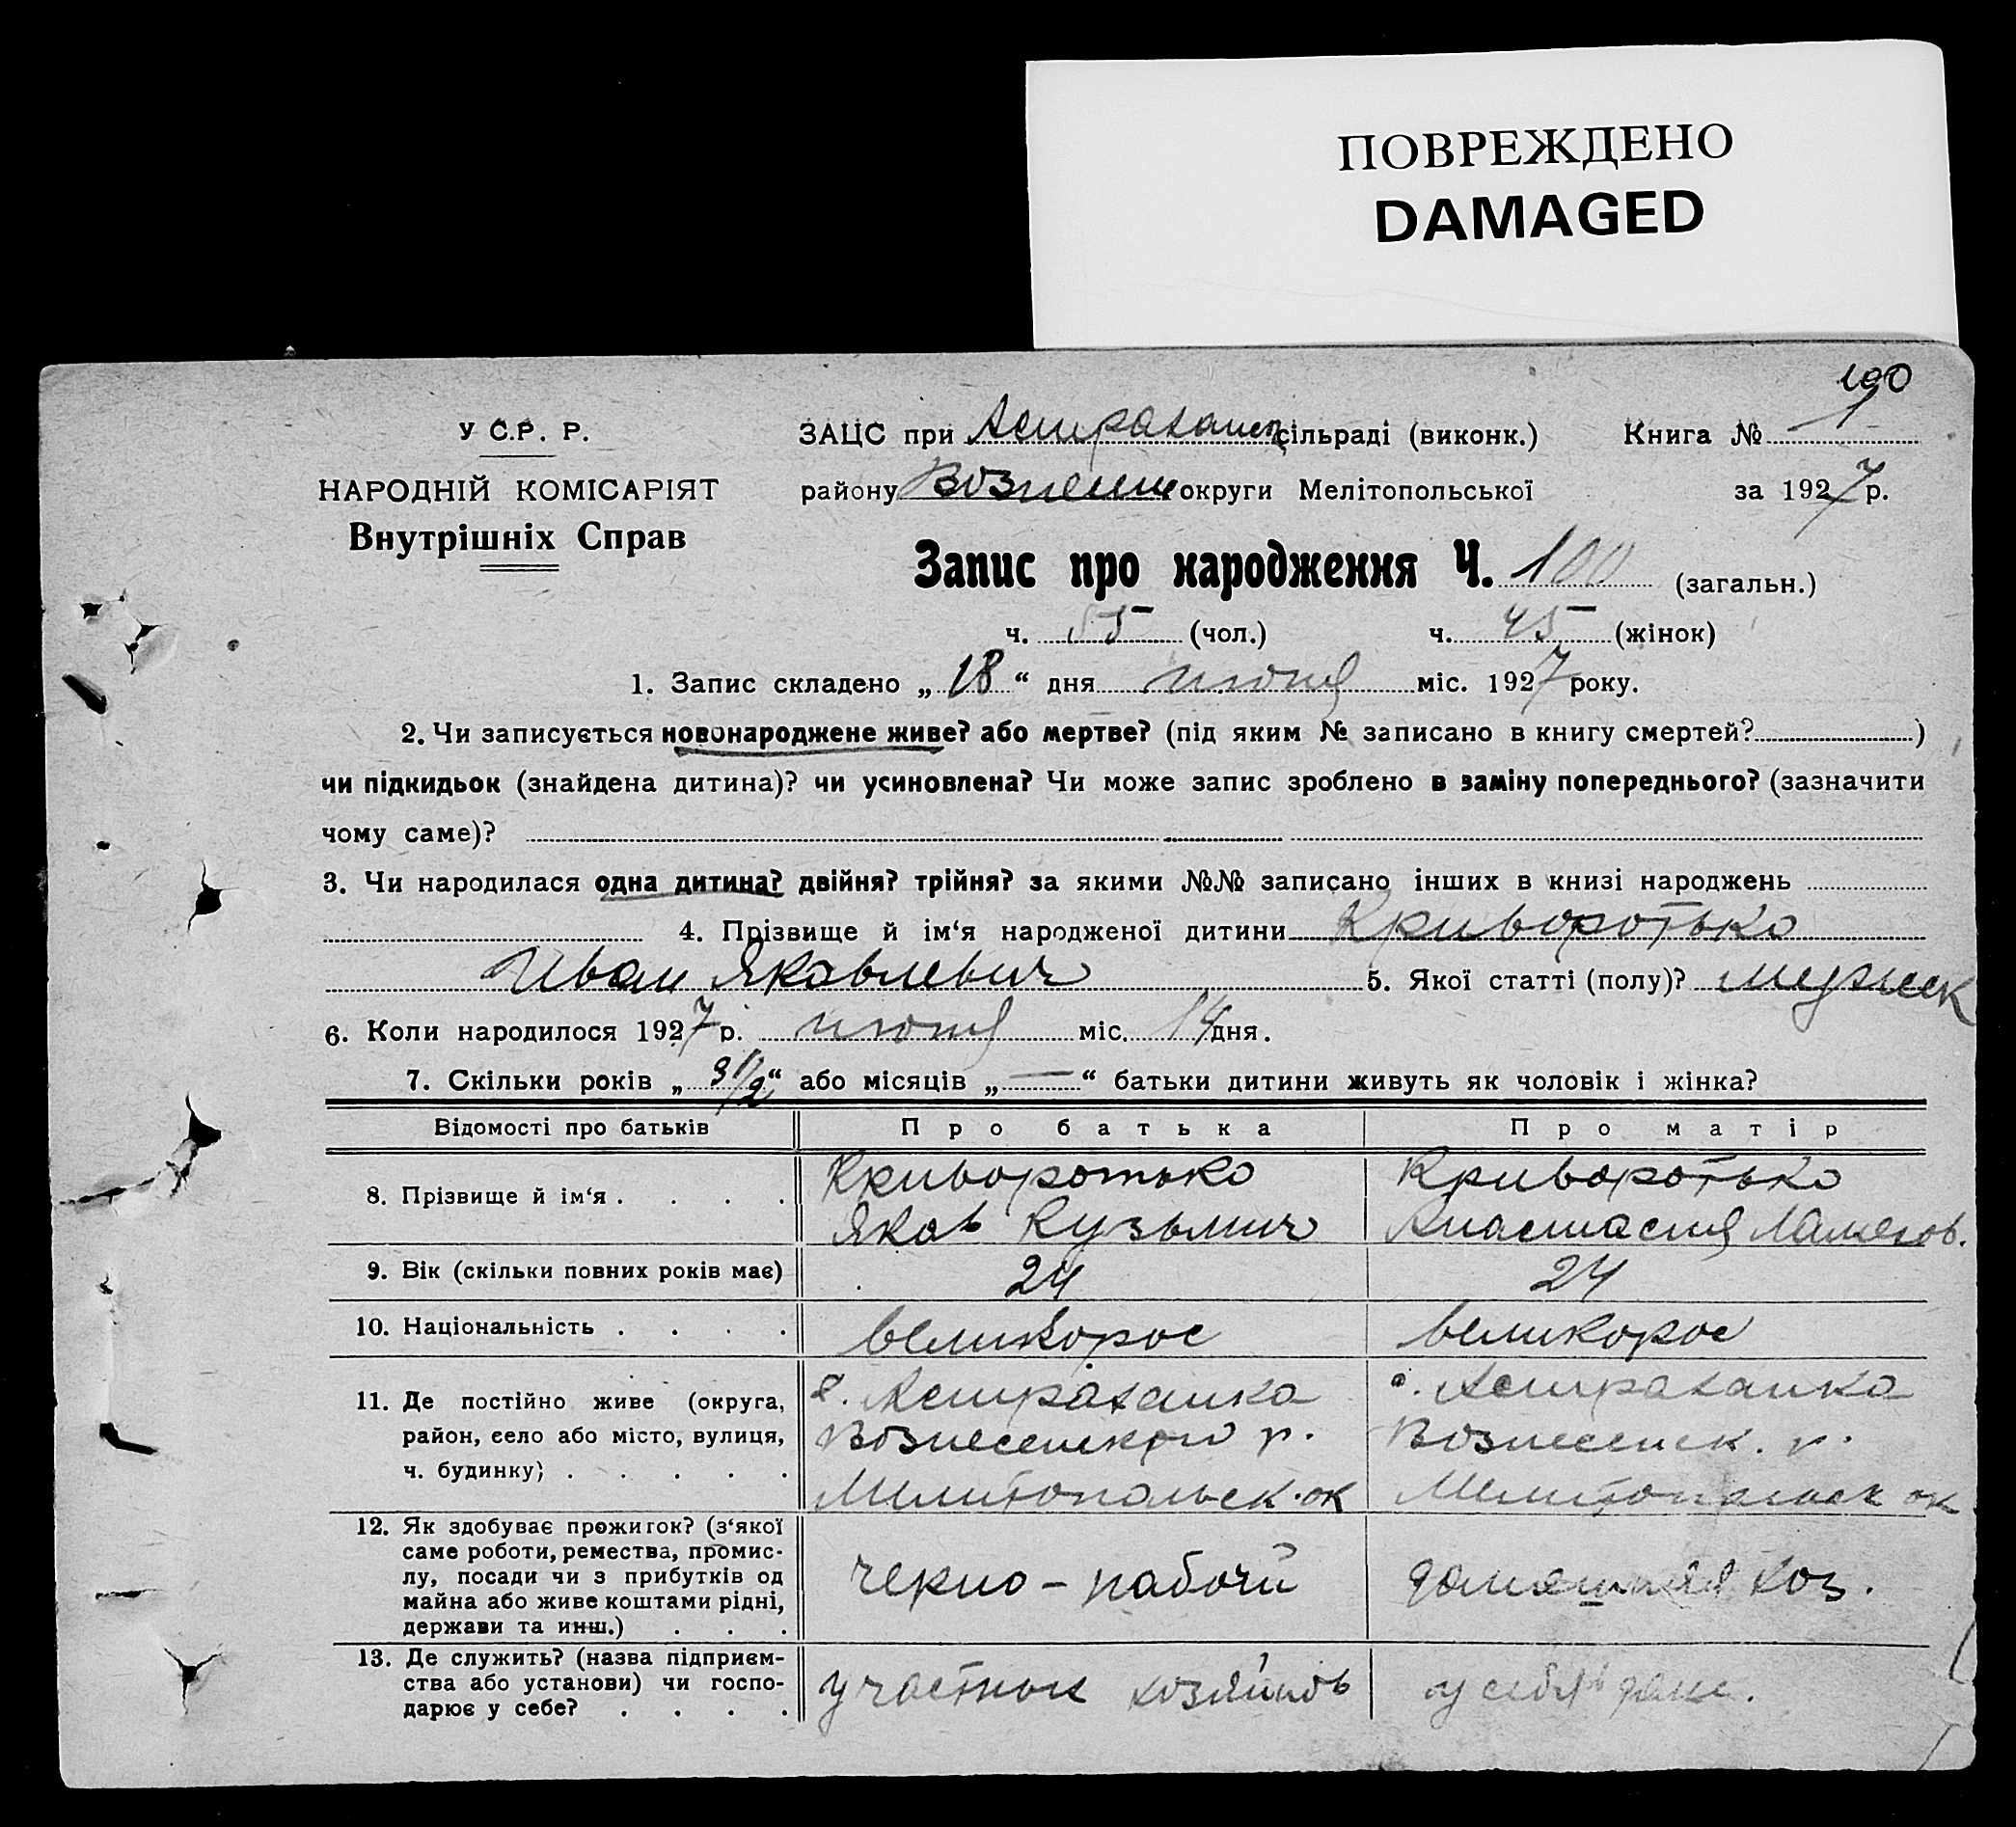 ПОВРЕЖДЕНО
DAMAGED
100
У С.Р. Р.
ЗАЦС при Астраханск сільраді (виконк.) Книга № 1
НАРОДНІЙ КОМІСАРІЯТ
району Вознесен округи Мелітопольської за 1927 р.
Внутрішніх Справ
Запис про народження Ч. 100 (загальн.)
ч. 55 (чол.) ч. 45 (жінок)
1. Запис складено „ 18 “ дня июня міс. 1927 року.
2. Чи записується новонароджене живе? або мертве? (під яким № записано в книгу смертей? )
чи підкидьок (знайдена дитина)? чи усиновлена? Чи може запис зроблено в заміну попереднього? (зазначити
чому саме)?
3. Чи народилася одна дитина? двійня? трійня? за якими №№ записано інших в книзі народжень
4. Прізвище й ім‘я народженої дитини Криворотько
Иван Яковлевич 5. Якої статті (полу)? мужск
6. Коли народилося 1927 р. июня міс. 14 дня.
7. Скільки років „ 3 1/2 “ або місяців „ — “ батьки дитини живуть як чоловік і жінка?
Відомості про батьків Про батька Про матір
8. Прізвище й ім‘я . . . . Криворотько Криворотько
Яков Кузьмич Анастасия
9. Вік (скільки повних років має) 24 24
10. Національність . . . . великорос великорос
11. Де постійно живе (округа, с. Астраханка с. Астраханка
район, село або місто, вулиця, Вознесенского р. Вознесенск. р.
ч. будинку) . . . . . Мелитопольск. ок Мелитопольск ок
12. Як здобуває прожиток? (з‘якої
саме роботи, ремества, промис-
лу, посади чи з прибутків од черно – рабочий домашняя хоз.
майна або живе коштами рідні,
держави та инш.) . . .
13. Де служить? (назва підприєм-
ства або установи) чи госпо- у частных хозяинов у себя дома.
дарює у себе? . . . .